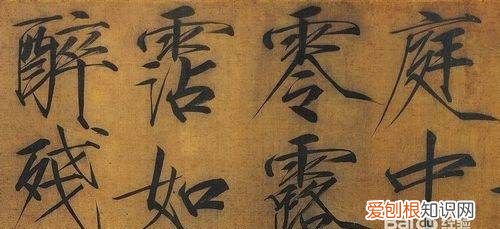 庭中
零露
霑如
醉殘
爱刨根知识网